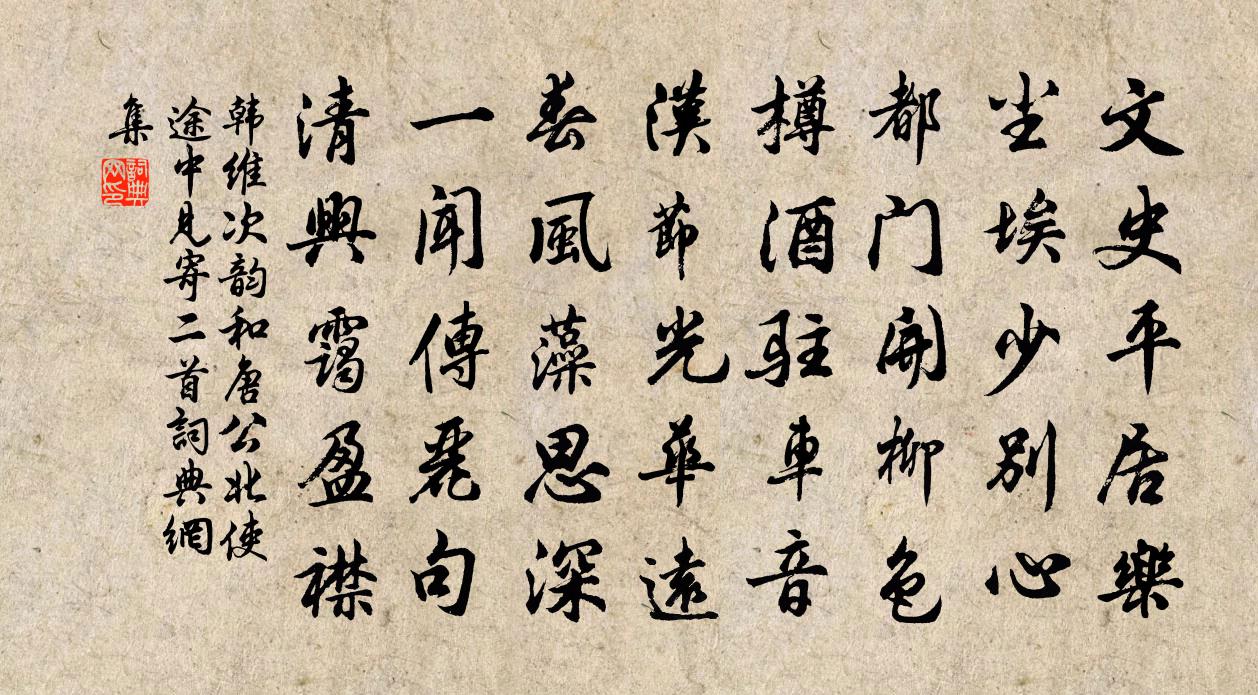 文史平居樂
尘埃少别心
都门開柳色
樽酒駐車音
漢節光華遠
春風藻思深
一聞傳麗句
清興靄盈襟
韩维次韵和唐公北使
途中見寄二首詞典網
集
詞典
网印